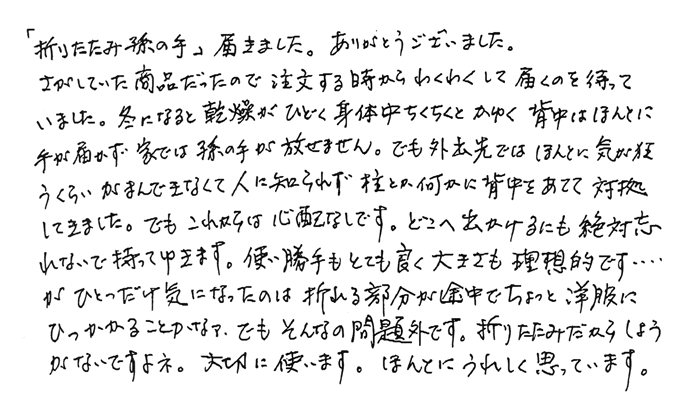 「折りたたみ孫の手」届きました。ありがとうございました。
さがしていた商品だったので注文する時からわくわくして届くのを待って
いました。冬になると乾燥がひどく身体中ちくちくとかゆく背中はほんとに
手が届かず家では孫の手が放せません。でも外出先ではほんとに気が狂
うくらいがまんできなくて人に知られず柱とか何かに背中をあてて対拠
してきました。でもこれからは心配なしです。どこへ出かけるにも絶対忘
れないで持ってゆきます。使い勝手もとても良く大きさも理想的です‥‥
がひとつだけ気になったのは折れる部分が途中でちょっと洋服に
ひっかかることかなァ、でもそんなの問題外です。折りたたみだからしょう
がないですよネ。大切に使います。ほんとにうれしく思っています。